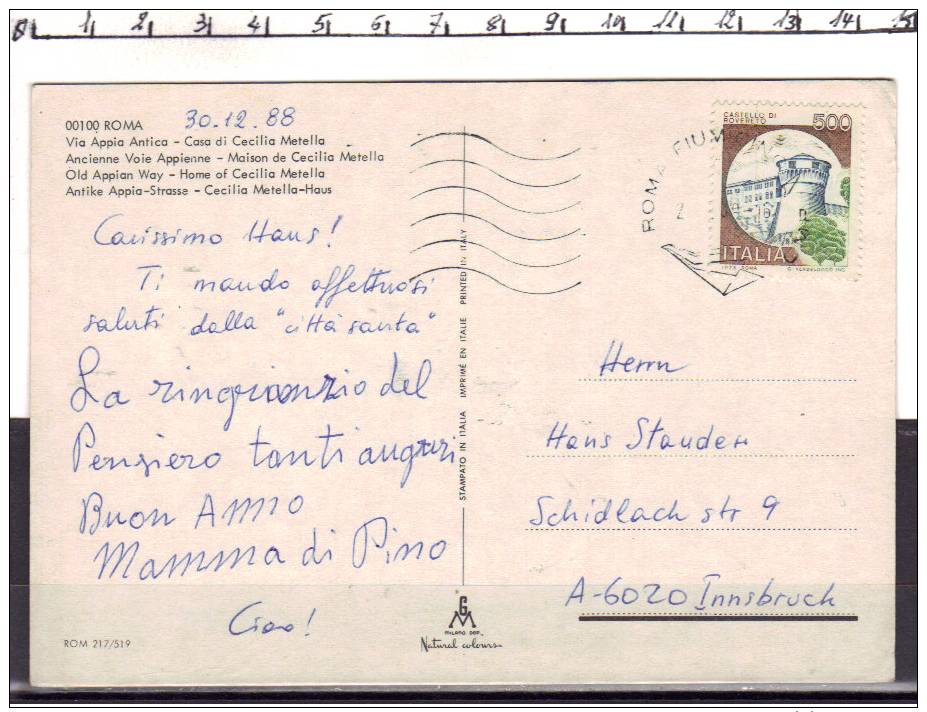 0 1 2 3 4 5 6 7 8 9 10 11 12 13 14 15
00100 ROMA 30.12.88
Via Appia Antica - Casa di Cecilia Metella
Ancienne Voie Appienne - Maison de Cecilia Metella
Old Appian Way - Home of Cecilia Metella
Antike Appia-Strasse - Cecilia Metella-Haus
Carissimo Hans!
Ti mando affettuosi
saluti dalla "città santa"
La ringrionzio del
Pensiero tanti auguri
Buon Anno
Mamma di Pino
Ciao!
ROM 217/519
STAMPATO IN ITALIA IMPRIMÉ EN ITALIE PRINTED IN ITALY
GM
MILANO DEP.
Natural colours
CASTELLO DI
ROVERETO
500
ITALIA
ROMA FIUM
2
Herrn
Hans Stauder
Schidlach str 9
A-6020 Innsbruck